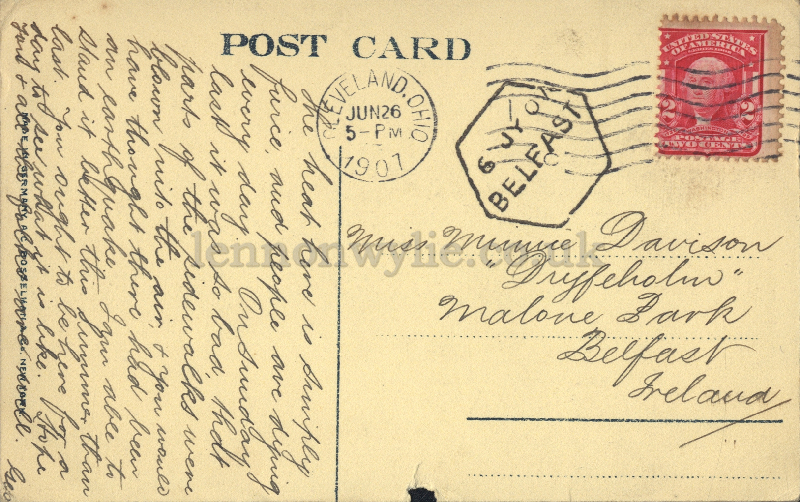 POST CARD
The heat here is simply
fierce and people are dying
every day. On Sunday
last it was so bad, that
parts of the sidewalks were
blown into the air, & you would
have thought there had been
an earthquake. I am able to
stand it better this summer than
last. You ought to be here for a
day to see what it is like. Hope
Jack & all the folks are well.
Geo
CLEVELAND, OHIO
JUN 26
5-PM
1907
6 JY 07
BELFAST
UNITED STATES
OF AMERICA
2 2
POSTAGE
TWO CENTS
Miss Minnie Davison
"Dryfeholm"
Malone Park
Belfast
Ireland
MADE IN GERMANY
NEW YORK
lennonwylie.co.uk